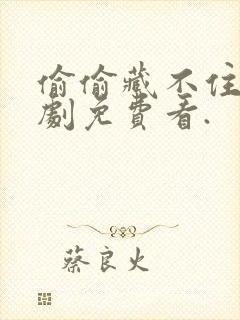 偷偷藏不住
劇免費看.
蔡良火